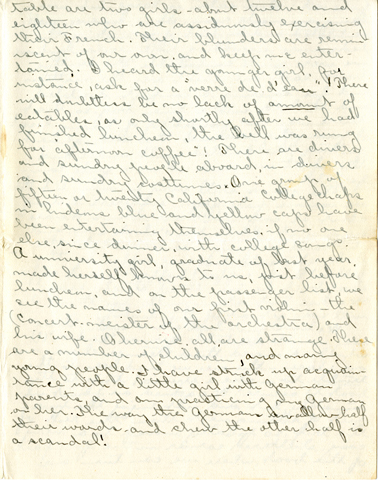 table are two girls - about twelve and
eighteen who are assiduously exercising
their French. Their blunders are remin-
iscent of our own, and keep me enter-
tained. I heard the younger girl, for
instance, ask for a "verre de d'eau". There
will doubtless be no lack of amount of
eatables, as only shortly after we had
finished luncheon, the bell was rung
for "afternoon coffee"! There are divers
and sundry people aboard, in divers
and sundry costumes. One group of
fifteen or twenty California college chaps
in blue and yellow caps have
been entertaining themselves, if no one
else, since dinner, with college songs.
A university girl, graduate of last year,
made herself known to us, just before
luncheon, and on the passenger list, we
see the names of our first violin - the
(concert-meister of the orchestra) and
his wife. Otherwise, all are strange. There
are a number of children, and many
young people. I have struck up acquain-
tance with a little girl with German
parents, and am practicing my German
on her. The way these Germans swallow half
their words - and chew the other half is
a scandal!